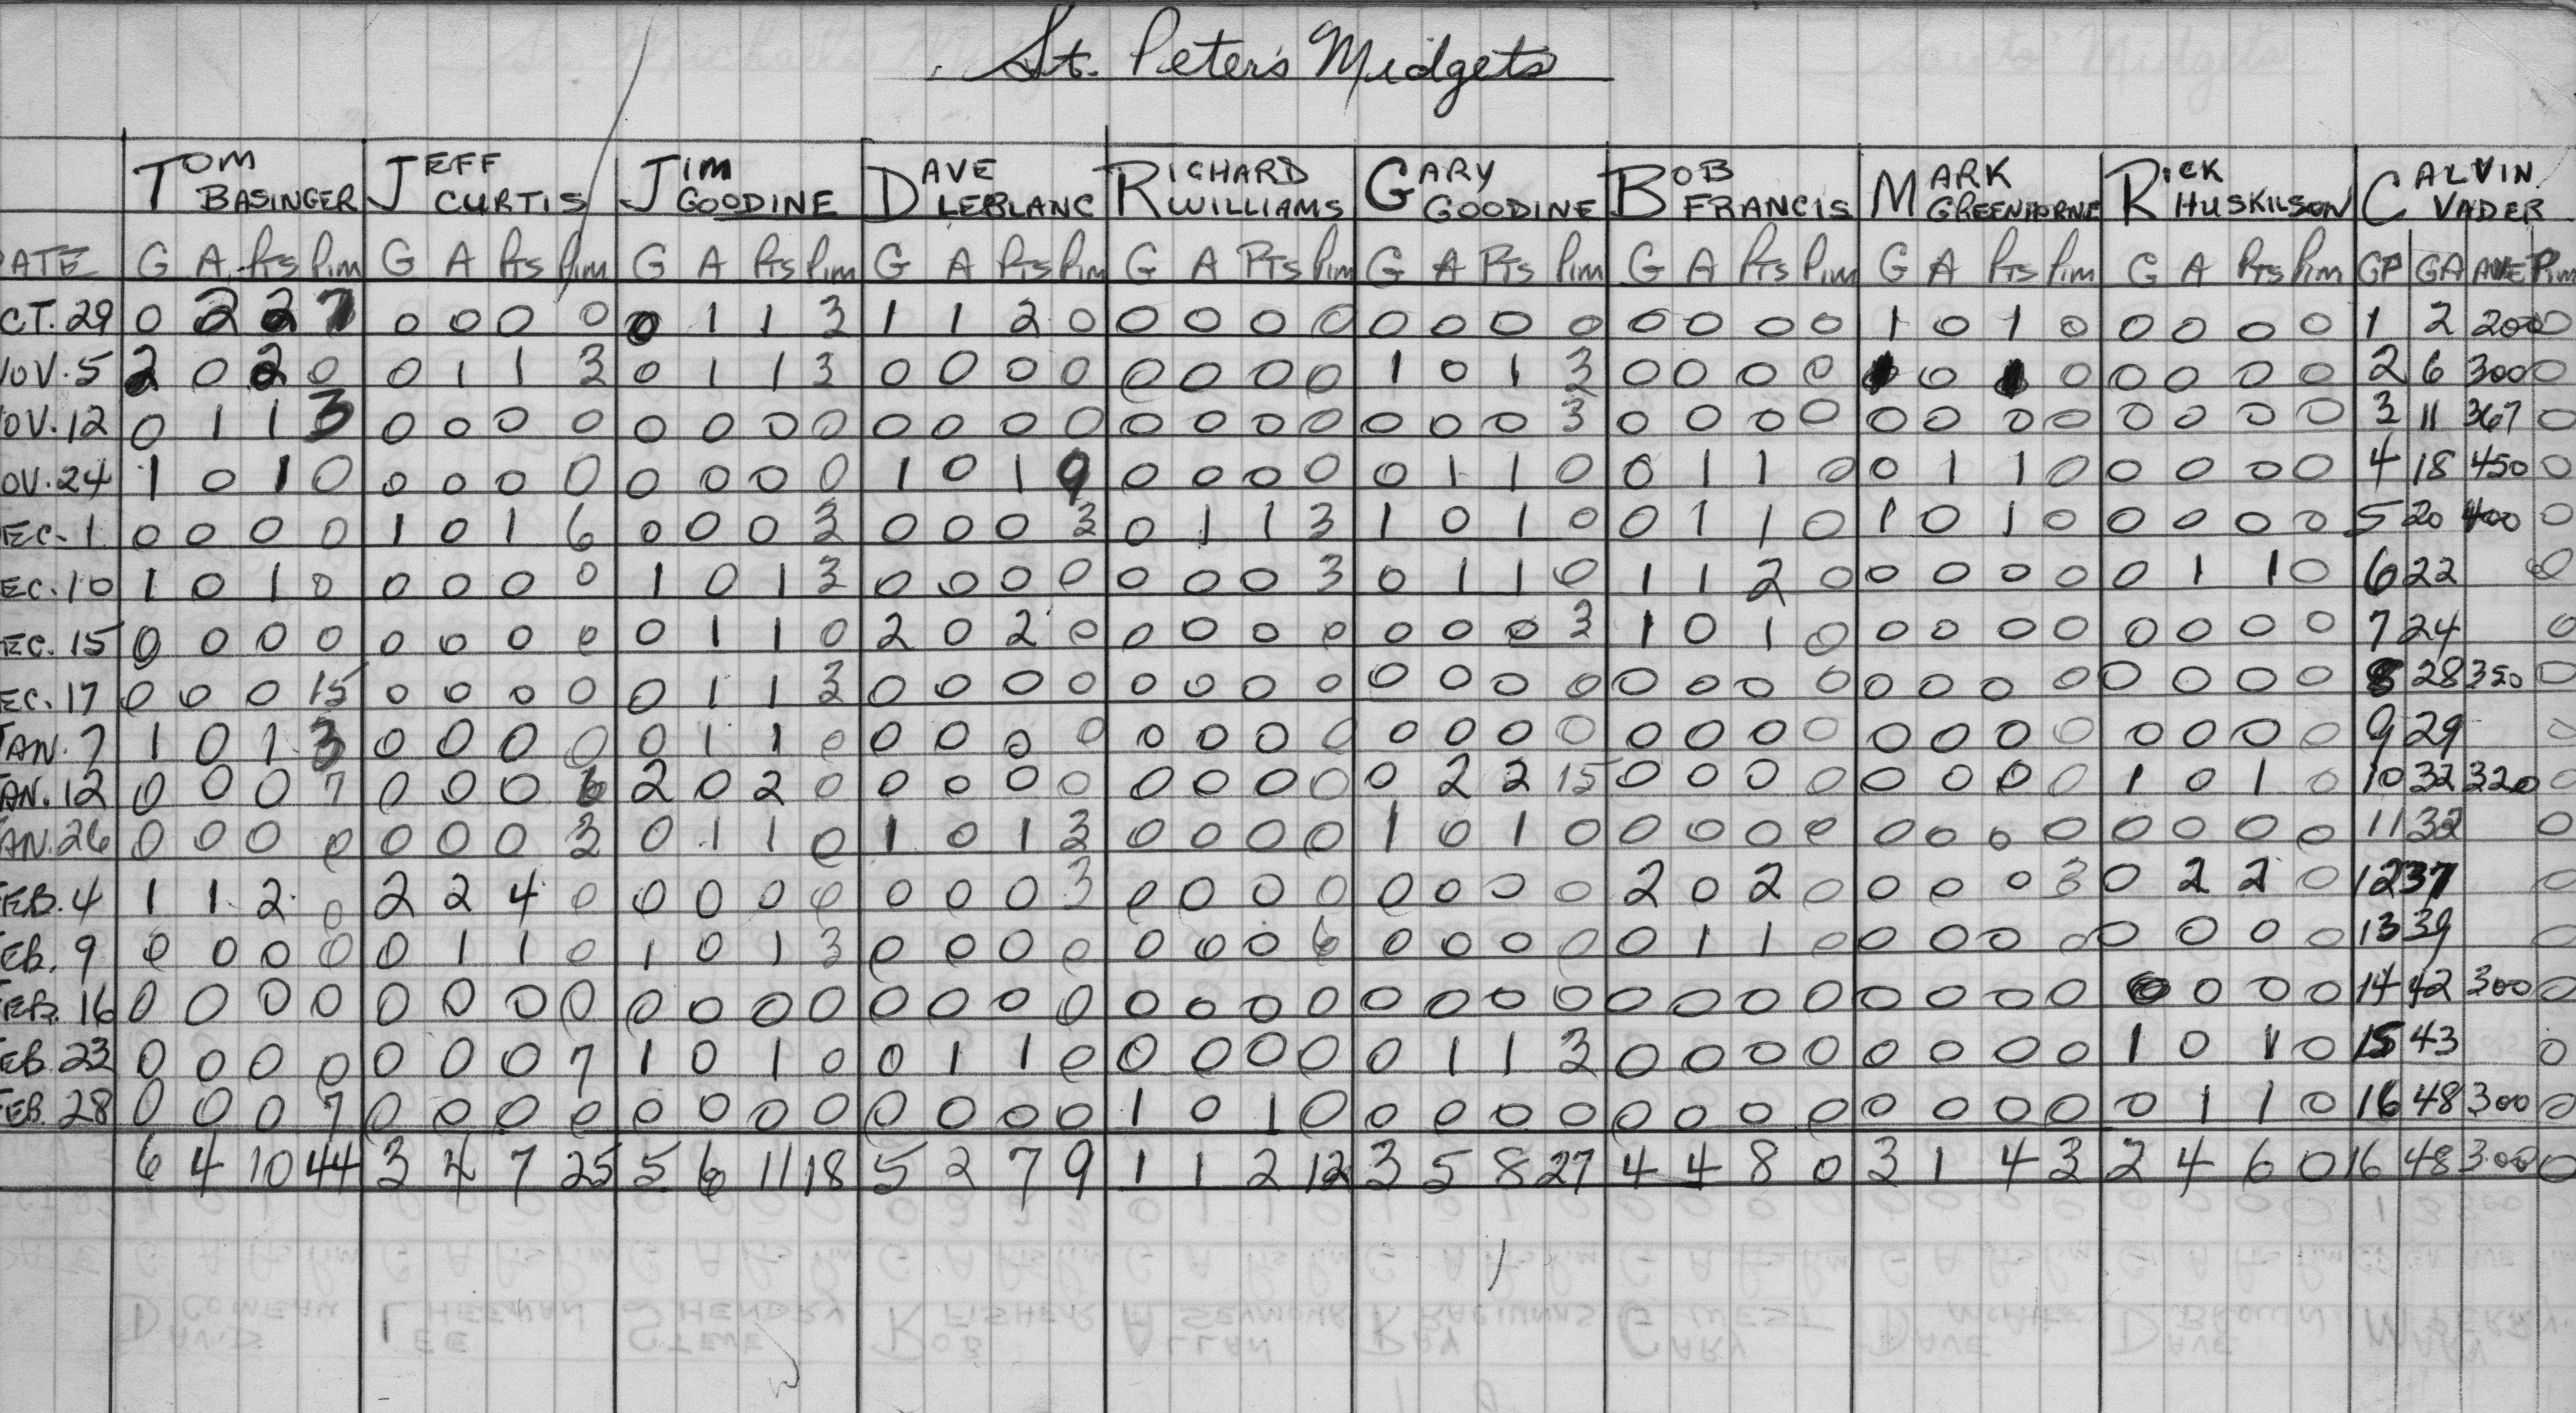 St. Peter's Midgets
TOM BASINGER JEFF CURTIS JIM GOODINE DAVE LEBLANC RICHARD WILLIAMS GARY GOODINE BOB FRANCIS MARK GREENHORNE RICK HUSKILSON CALVIN VADER
ATE G A Pts Pim G A Pts Pim G A Pts Pim G A Pts Pim G A PTs Pim G A Pts Pim G A Pts Pim G A Pts Pim G A Pts Pim GP GA AVE Pim
CT. 29 0 2 2 7 0 0 0 0 0 1 1 3 1 1 2 0 0 0 0 0 0 0 0 0 0 0 0 0 1 0 1 0 0 0 0 0 1 2 200 0
OV. 5 2 0 2 0 0 1 1 3 0 1 1 3 0 0 0 0 0 0 0 0 1 0 1 3 0 0 0 0 1 0 1 0 0 0 0 0 2 6 300 0
OV. 12 0 1 1 3 0 0 0 0 0 0 0 0 0 0 0 0 0 0 0 0 0 0 0 3 0 0 0 0 0 0 0 0 0 0 0 0 3 11 367 0
OV. 24 1 0 1 0 0 0 0 0 0 0 0 0 1 0 1 9 0 0 0 0 0 1 1 0 0 1 1 0 0 1 1 0 0 0 0 0 4 18 450 0
EC. 1 0 0 0 0 1 0 1 6 0 0 0 3 0 0 0 3 0 1 1 3 1 0 1 0 0 1 1 0 1 0 1 0 0 0 0 0 5 20 400 0
EC. 10 1 0 1 0 0 0 0 0 1 0 1 3 0 0 0 0 0 0 0 3 0 1 1 0 1 1 2 0 0 0 0 0 0 1 1 0 6 22 0
EC. 15 0 0 0 0 0 0 0 0 0 1 1 0 2 0 2 0 0 0 0 0 0 0 0 3 1 0 1 0 0 0 0 0 0 0 0 0 7 24 0
EC. 17 0 0 0 15 0 0 0 0 0 1 1 3 0 0 0 0 0 0 0 0 0 0 0 0 0 0 0 0 0 0 0 0 0 0 0 0 8 28 350 0
AN. 7 1 0 1 3 0 0 0 0 0 1 1 0 0 0 0 0 0 0 0 0 0 0 0 0 0 0 0 0 0 0 0 0 0 0 0 0 9 29 0
AN. 12 0 0 0 7 0 0 0 6 2 0 2 0 0 0 0 0 0 0 0 0 0 2 2 15 0 0 0 0 0 0 0 0 1 0 1 0 10 32 320 0
AN. 26 0 0 0 0 0 0 0 3 0 1 1 0 1 0 1 3 0 0 0 0 1 0 1 0 0 0 0 0 0 0 0 0 0 0 0 0 11 32 0
EB. 4 1 1 2 0 2 2 4 0 0 0 0 0 0 0 0 3 0 0 0 0 0 0 0 0 2 0 2 0 0 0 0 3 0 2 2 0 12 37 0
EB. 9 0 0 0 0 0 1 1 0 1 0 1 3 0 0 0 0 0 0 0 6 0 0 0 0 0 1 1 0 0 0 0 0 0 0 0 0 13 39 0
EB. 16 0 0 0 0 0 0 0 0 0 0 0 0 0 0 0 0 0 0 0 0 0 0 0 0 0 0 0 0 0 0 0 0 0 0 0 0 14 42 300 0
EB. 23 0 0 0 0 0 0 0 7 1 0 1 0 0 1 1 0 0 0 0 0 0 1 1 3 0 0 0 0 0 0 0 0 1 0 1 0 15 43 0
EB. 28 0 0 0 7 0 0 0 0 0 0 0 0 0 0 0 0 1 0 1 0 0 0 0 0 0 0 0 0 0 0 0 0 0 1 1 0 16 48 300 0
6 4 10 44 3 4 7 25 5 6 11 18 5 2 7 9 1 1 2 12 3 5 8 27 4 4 8 0 3 1 4 3 2 4 6 0 16 48 300 0